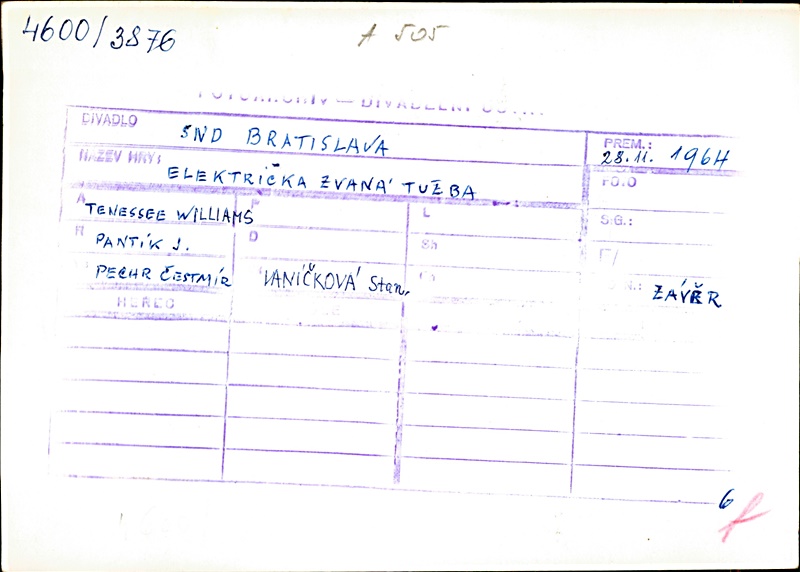 4600/3876
A 505
DIVADLO
SND BRATISLAVA
PREM.:
28.11. 1964
NÁZEV HRY:
ELEKTRIČKA ZVANÁ TUŽBA
FO.O
A
TENESSEE WILLIAMS
L
S.G.:
R
PANTÍK J.
D
Sh
PECHR ČESTMÍR
VANÍČKOVÁ Stan.
ZÁVĚR
HEREC
6